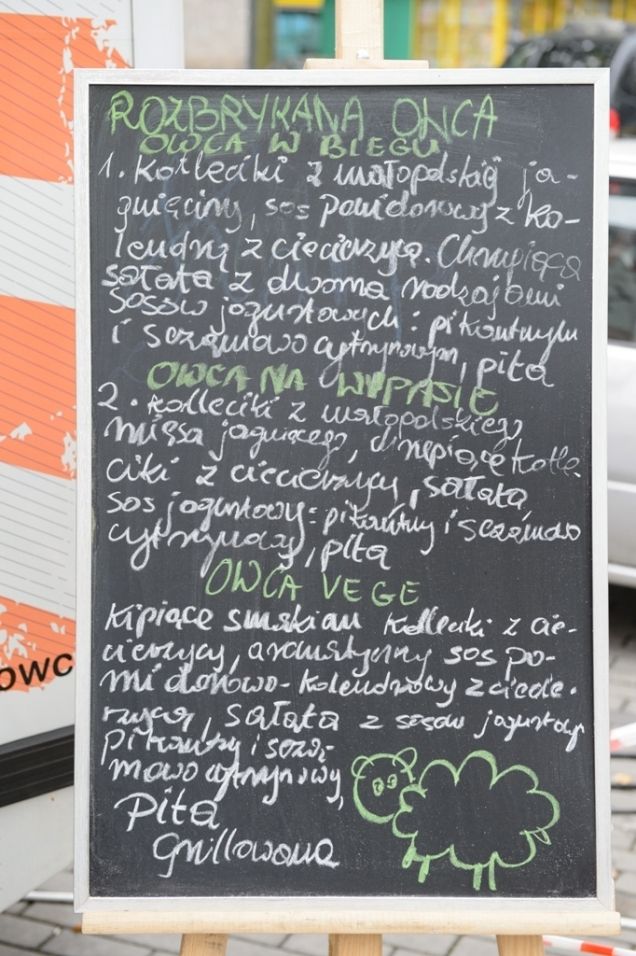 ROZBRYKANA OWCA
OWCA W BIEGU
1. Kotleciki z małopolskiej ja-
gnięciny, sos pomidorowy z ko-
lendrą z ciecierzycą. Chrupiąca
sałata z dwoma rodzajami
sosów jogurtowych: pikantnym
i sezamowo cytrynowym, pita
OWCA NA WYPASIE
2. Kotleciki z małopolskiego
mięsa jagnięcego, chrupiące kotle-
ciki z ciecierzycy, sałata,
sos jogurtowy: pikantny i sezamowo
cytrynowy, pita
OWCA VEGE
Kipiące smakiem kotleciki z cie-
cierzycy, aromatyczny sos po-
midorowo-kolendrowy z ciecie-
rzycą, sałata z sosem jogurtowym
pikantny i seza-
mowo cytrynowy,
Pita
Grillowana
OWC